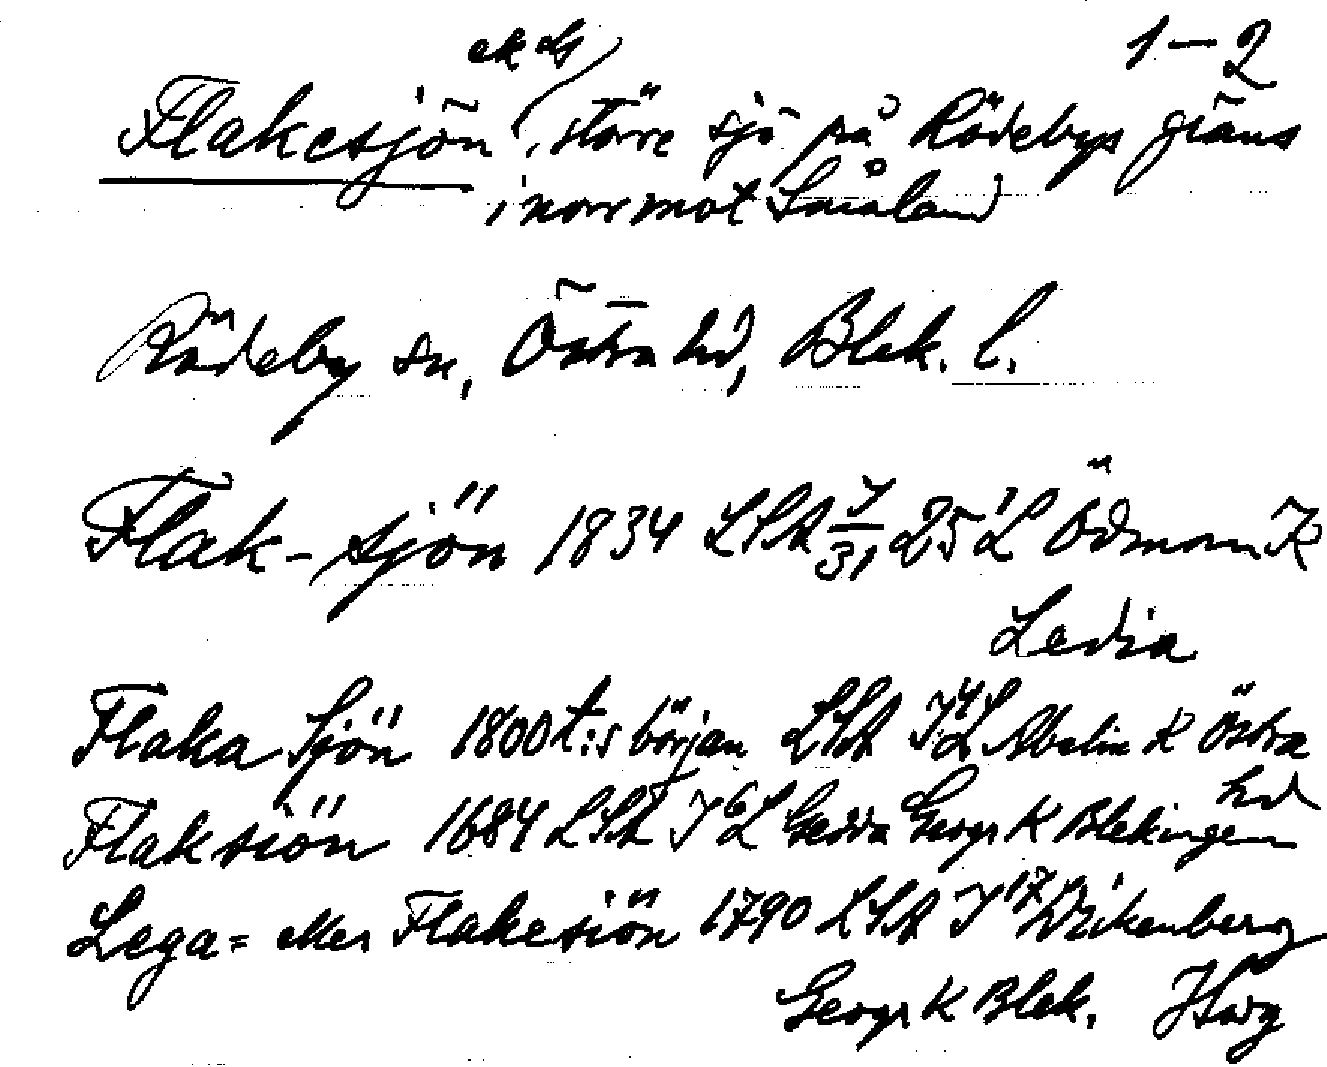 ek L) 1–2
Flakesjön, större sjö på Rödebys gräns
i norr mot Småland
Rödeby sn, Östra hd, Blek. l.
Flak-sjön 1834 LSA 25 L Ödman K
Ledia
Flaka Sjön 1800 t:s början LSA J4L Abelin K Östra
hd
Flaksiön 1684 LSA J6L Gedda Geogr K Blekingen
Lega= eller Flakesiön 1790 LSA J17 Wikenberg
Geogr K Blek.